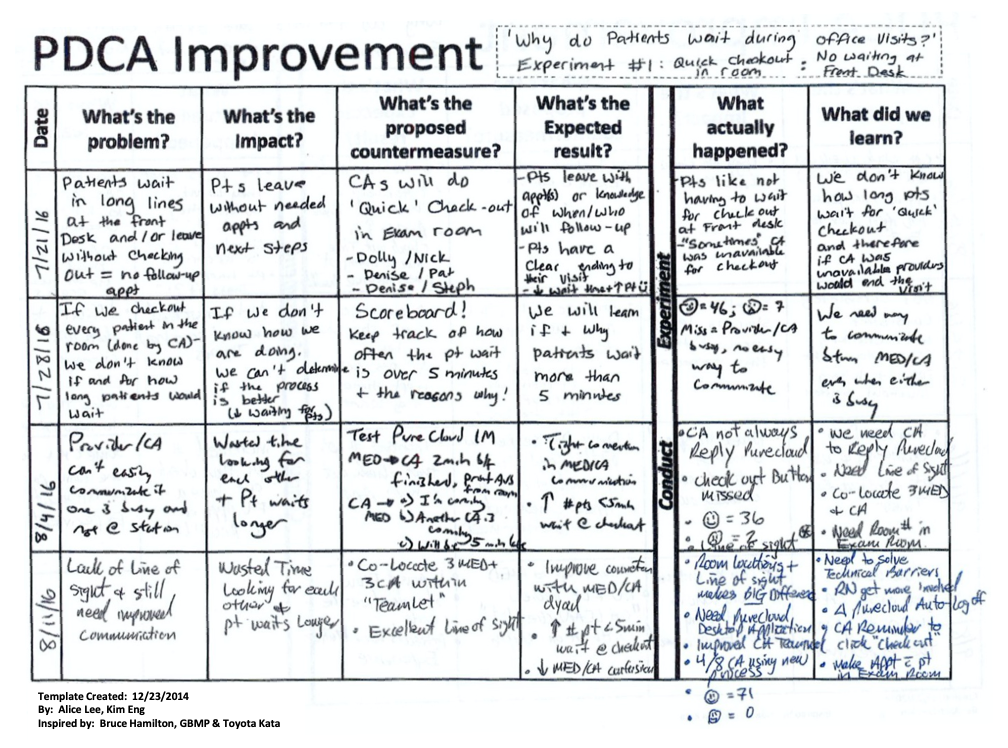 PDCA Improvement
'Why do Patients wait during office visits?'
Experiment #1: Quick checkout in room = No waiting at Front Desk
Date
What's the problem?
What's the Impact?
What's the proposed countermeasure?
What's the Expected result?
What actually happened?
What did we learn?
Experiment
Conduct
7/21/16
Patients wait
in long lines
at the front
Desk and/or leave
without checking
out = no follow-up
appt
Pts leave
without needed
appts and
next steps
CAs will do
'Quick' Check-out
in Exam room
- Dolly/Nick
- Denise/Pat
- Denise/Steph
- Pts leave with
appt(s) or knowledge
of when/who
will follow-up
- Pts have a
clear ending to
their visit
- ↓ wait time + ↑ Pt ☺
- Pts like not
having to wait
for check out
at Front desk
- "Sometimes" CA
was unavailable
for checkout
We don't know
how long pts
wait for 'Quick'
checkout
and therefore
if CA was
unavailable providers
would end the visit
7/28/16
If we checkout
every patient in the
room (done by CA)-
we don't know
if and for how
long patients would
wait
If we don't
know how we
are doing.
we can't determine
if the process
is better
(↓ waiting for pts)
Scoreboard!
Keep track of how
often the pt wait
is over 5 minutes
+ the reasons why!
We will learn
if + why
patients wait
more than
5 minutes
☺=46; ☹=7
Miss = Provider/CA
busy, no easy
way to
communicate
We need way
to communicate
btwn MED/CA
even when either
is busy
8/4/16
Provider/CA
can't easily
communicate if
one is busy and
not @ station
Wasted time
looking for
each other
+ Pt waits
longer
Test PureCloud IM
MED → CA 2min b/4
finished, print AVS
from room
CA → a) I'm coming
MED b) Another CA is
coming
c) Will be 5 min late
• Tight connection
in MED/CA
communication
• ↑ # pts ≤5min
wait @ checkout
• CA not always
Reply Purecloud
• check out Button
missed
• ☺ = 36
• ☹ = 2
• Line of sight
• We need CA
to Reply Purecloud
• Need Line of Sight
• Co-Locate 3 MED
+ CA
• Need Room # in
Exam Room.
8/11/16
Lack of Line of
sight & still
need improved
communication
Wasted Time
Looking for each
other &
pt waits longer
• Co-Locate 3 MED +
3 CA within
"Teamlet"
• Excellent Line of Sight
• Improve connection
with MED/CA
dyad
• ↑ # pt <5min
wait @ checkout
• ↓ MED/CA confusion
• Room locations +
Line of sight
makes BIG Difference
• Need Purecloud
Desktop Application
• Improved CA Teamlet
• 4/8 CA using new
process
• ☺ = 71
• ☹ = 0
• Need to solve
Technical Barriers
• RN get more involved
• Δ Purecloud Auto-Log off
• CA Reminder to
click "check out"
• Make Appt c̄ pt
in Exam Room
Template Created: 12/23/2014
By: Alice Lee, Kim Eng
Inspired by: Bruce Hamilton, GBMP & Toyota Kata